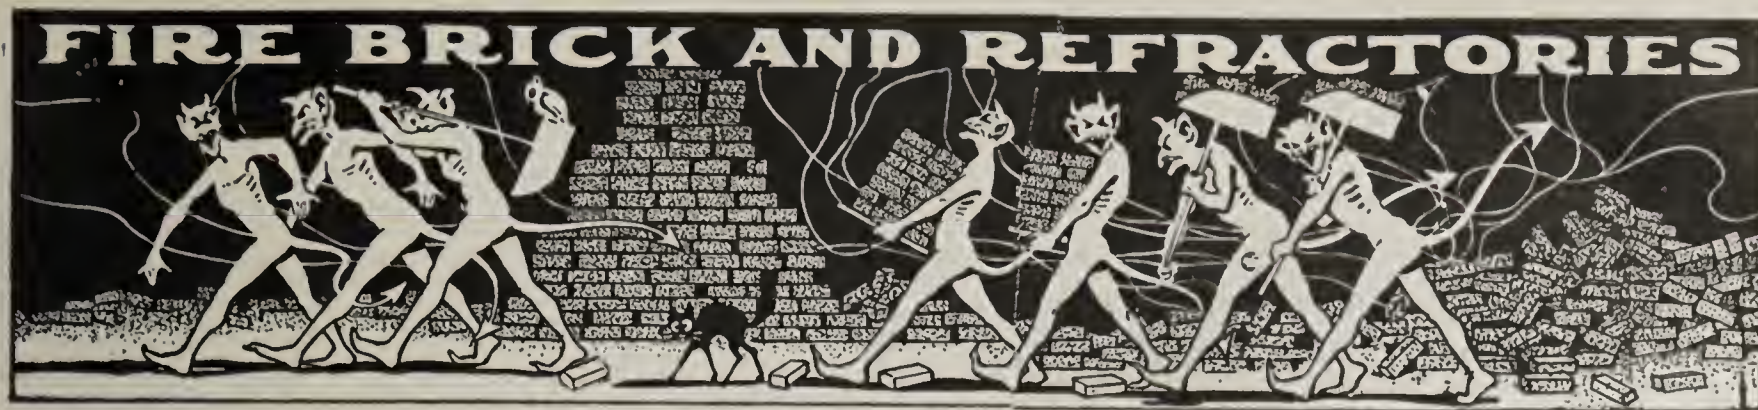 FIRE BRICK AND REFRACTORIES